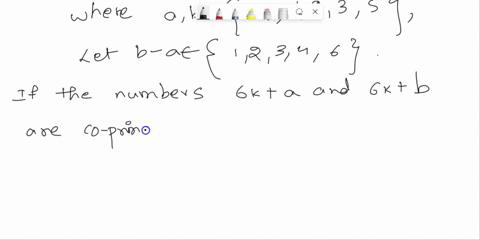 where a, { , 3, 5 },
Let b-a∈ { 1, 2, 3, 4, 6 } .
If the numbers 6k + a and 6k + b
are co-prim